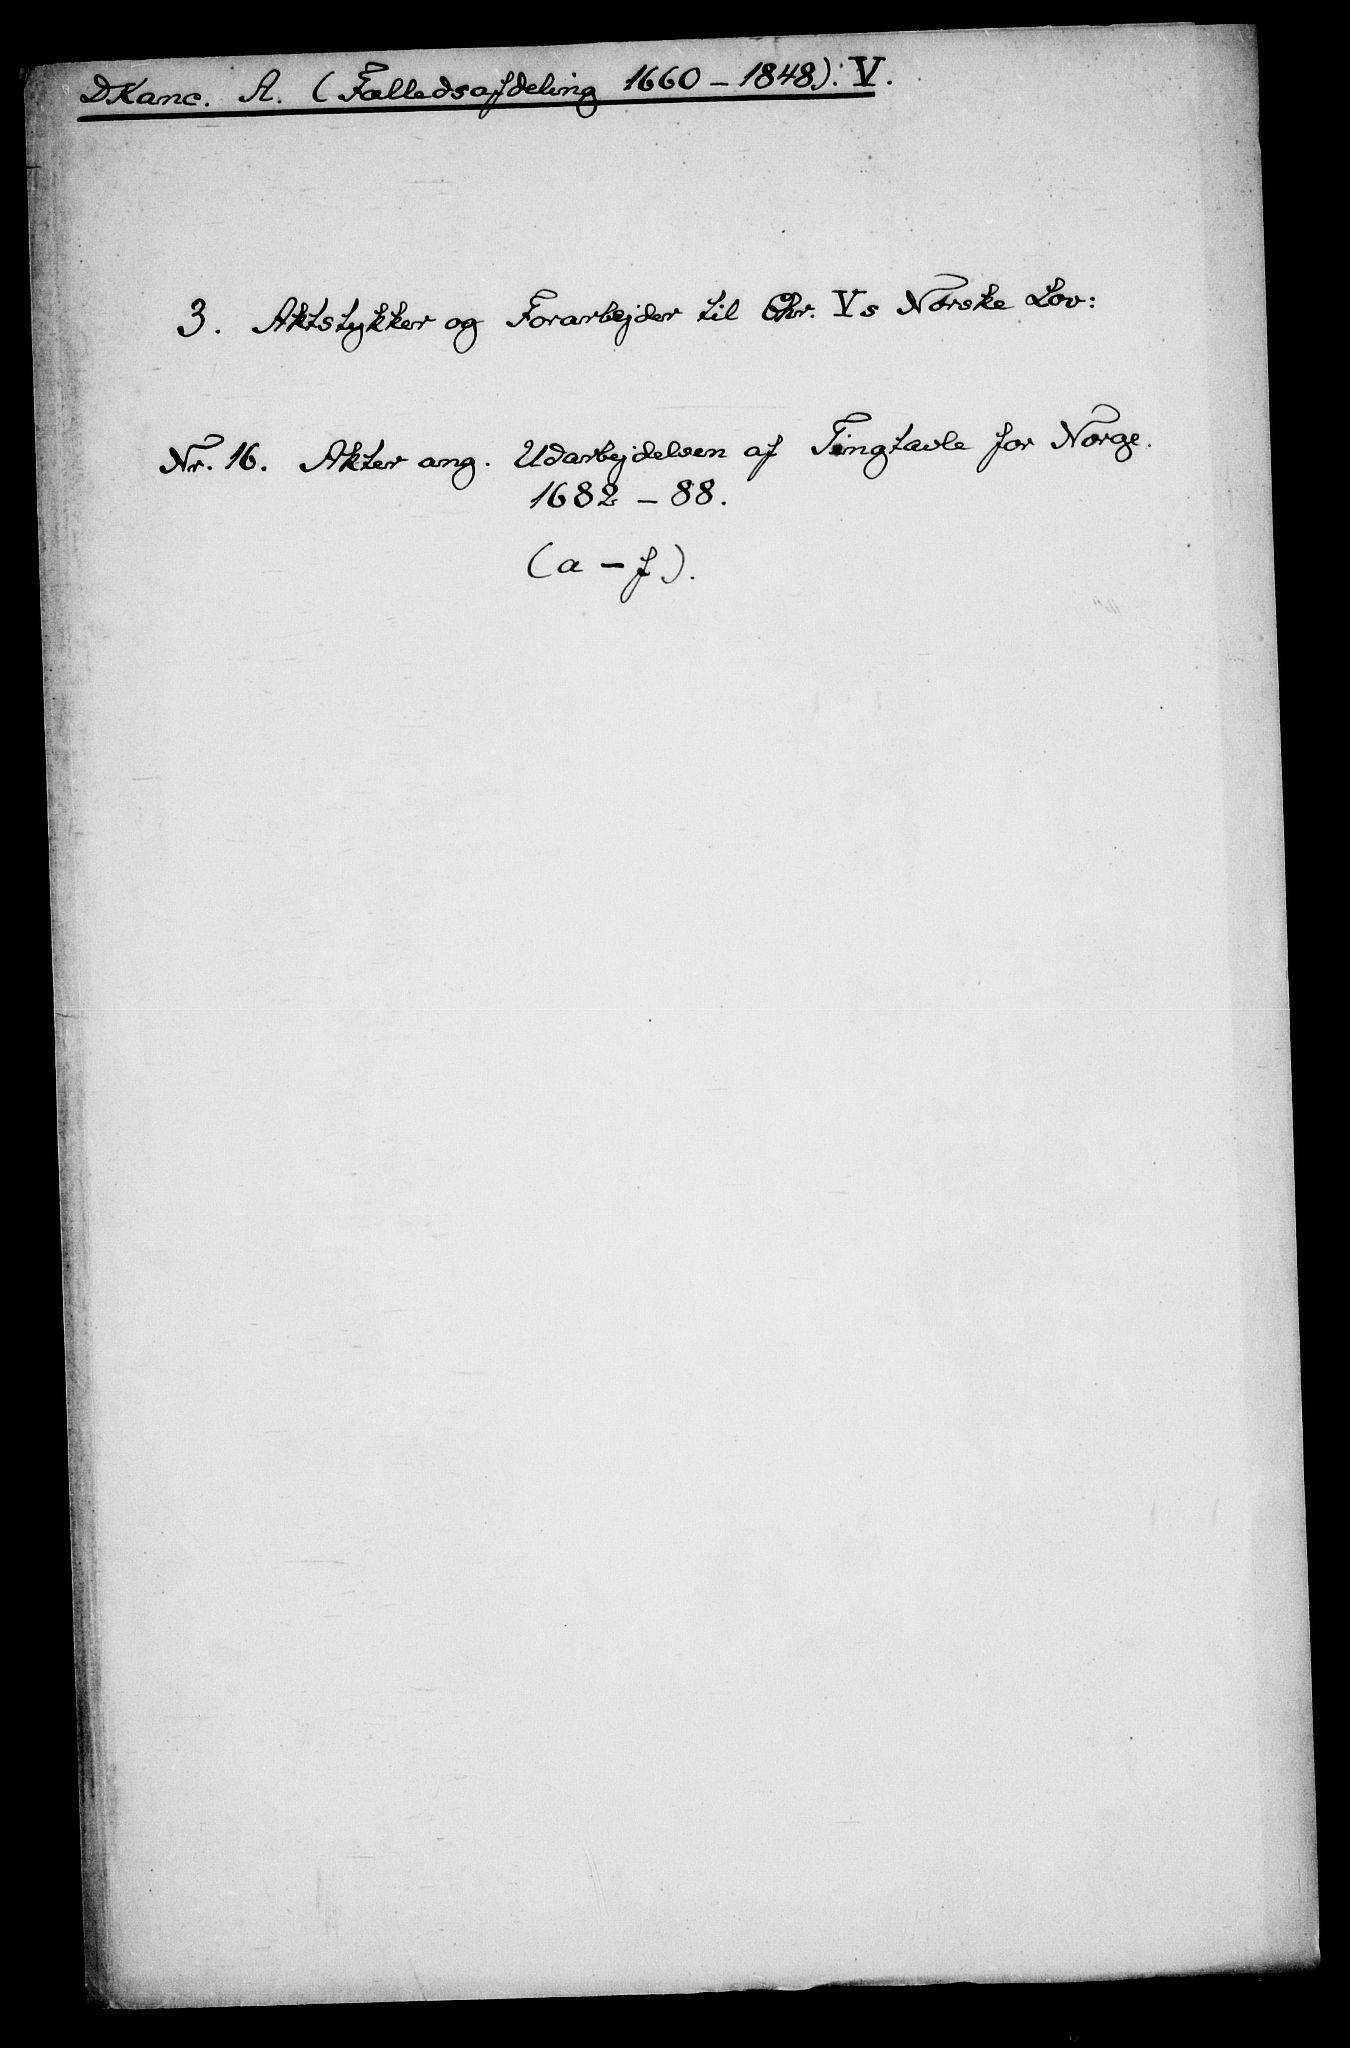 DKanc. A. (Fælledsafdeling 1660 - 1848). V.
3. Aktstykker og Forarbejder til Chr. Vs Norske Lov:
Nr. 16. Akter ang. Udarbejdelsen af Tingtavle for Norge.
1682 - 88.
(a - f).